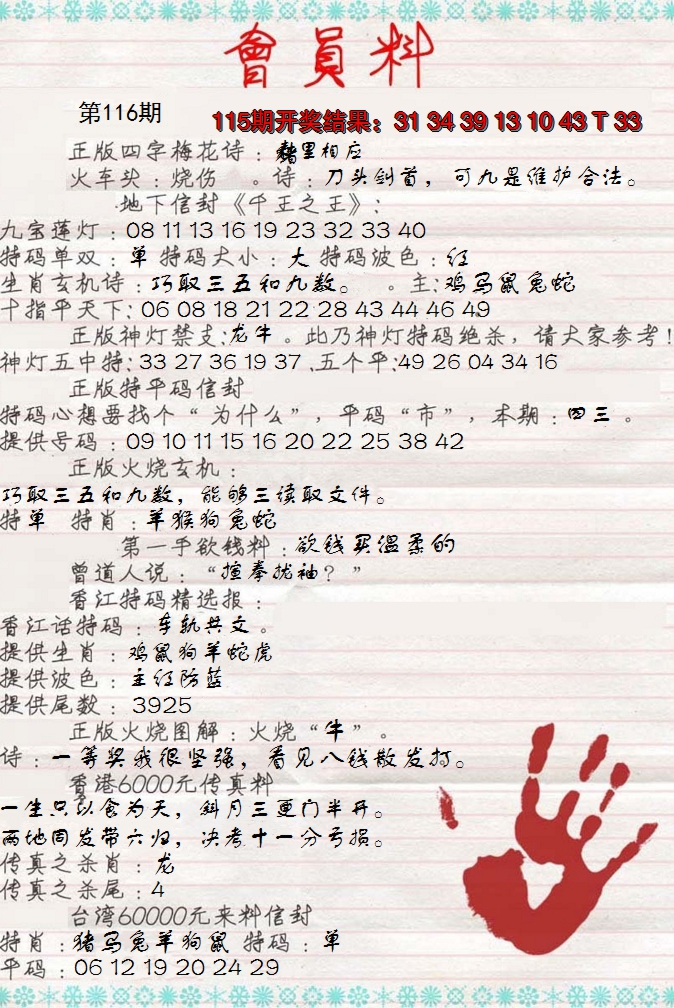 會員料
第116期
115期开奖结果：31 34 39 13 10 43 T 33
正版四字梅花诗：里相应
火车头：烧伤 。诗：刀头剑首，可九是维护合法。
地下信封《千王之王》:
九宝莲灯：08 11 13 16 19 23 32 33 40
特码单双：单 特码大小：大 特码波色：红
生肖玄机诗：巧取三五和九数。 。主:鸡马鼠兔蛇
十指平天下: 06 08 18 21 22 28 43 44 46 49
正版神灯禁支:龙牛。此乃神灯特码绝杀，请大家参考!
神灯五中特: 33 27 36 19 37 .五个平:49 26 04 34 16
正版特平码信封
特码心想要找个“为什么”，平码“市”，本期：四三。
提供号码：09 10 11 15 16 20 22 25 38 42
正版火烧玄机：
巧取三五和九数，能够三读取文件。
特单 特肖：羊猴狗兔蛇
第一手欲钱料：欲钱买温柔的
曾道人说：“揎拳拢袖？”
香江特码精选报：
香江话特码：车轨共文。
提供生肖：鸡鼠狗羊蛇虎
提供波色：主红防蓝
提供尾数：3925
正版火烧图解：火烧“牛”。
诗：一等奖我很坚强，看见八钱散发打。
香港6000元传真料
一生只以食为天，斜月三更门半开。
两地同发带六归，决考十一分亏损。
传真之杀肖：龙
传真之杀尾：4
台湾60000元来料信封
特肖：猪马兔羊狗鼠 特码：单
平码：06 12 19 20 24 29